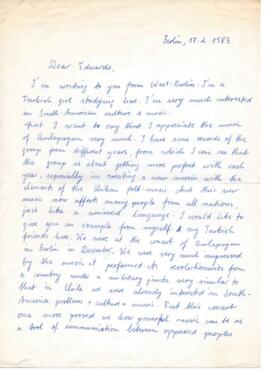 Berlin, 17.2.1983
Dear Eduardo,
I'm writing to you from West-Berlin. I'm a
Turkish girl studying here. I'm very much interested
in South-American culture & music.
First I want to say that I appreciate the music
of Quilapayun very much. I have some records of the
group from different years from which I can see that
the group is about getting more perfect with each
year, especially in creating a new music with the
elements of the Chilean folk-music. And this new
music now affects many people from all nations,
just like a universal language. I would like to
give you an example from myself & my Turkish
friends here. We were at the concert of Quilapayun
in Berlin in December. We were very much impressed
by the music it performed. As revolutionaries from
a country under a military junta very similar to
that in Chile we were already interested in South-
America problems + culture + music. But this concert
once more proved us how powerful music can be as
a tool of communication between oppressed peoples